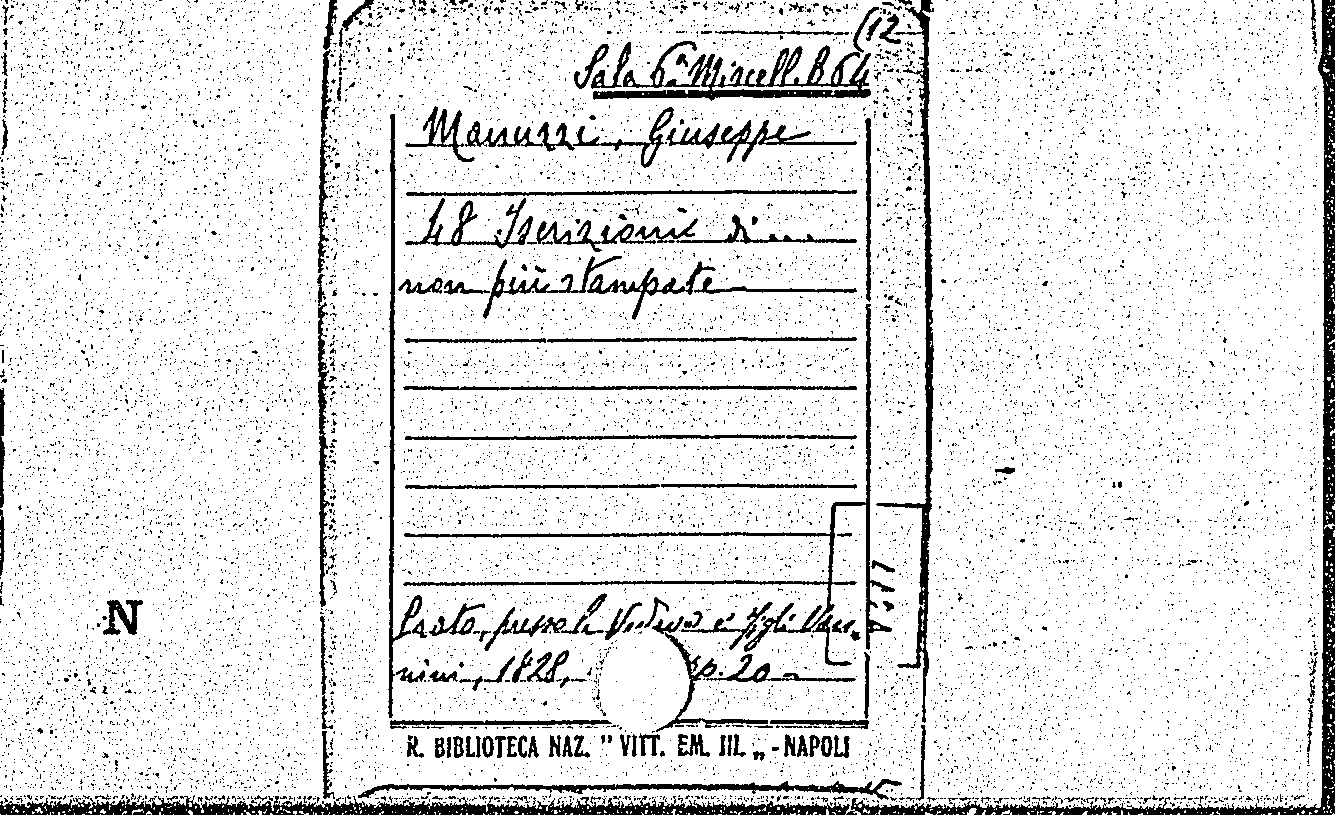 (12
Sala 6ª Miscell. B 64
Manuzzi, Giuseppe
48 Iscrizioni di...
non più stampate
Prato, presso la Vedova e Figli Van-
nini, 1828, p. 20
N
R. BIBLIOTECA NAZ. " VITT. EM. III. „ - NAPOLI